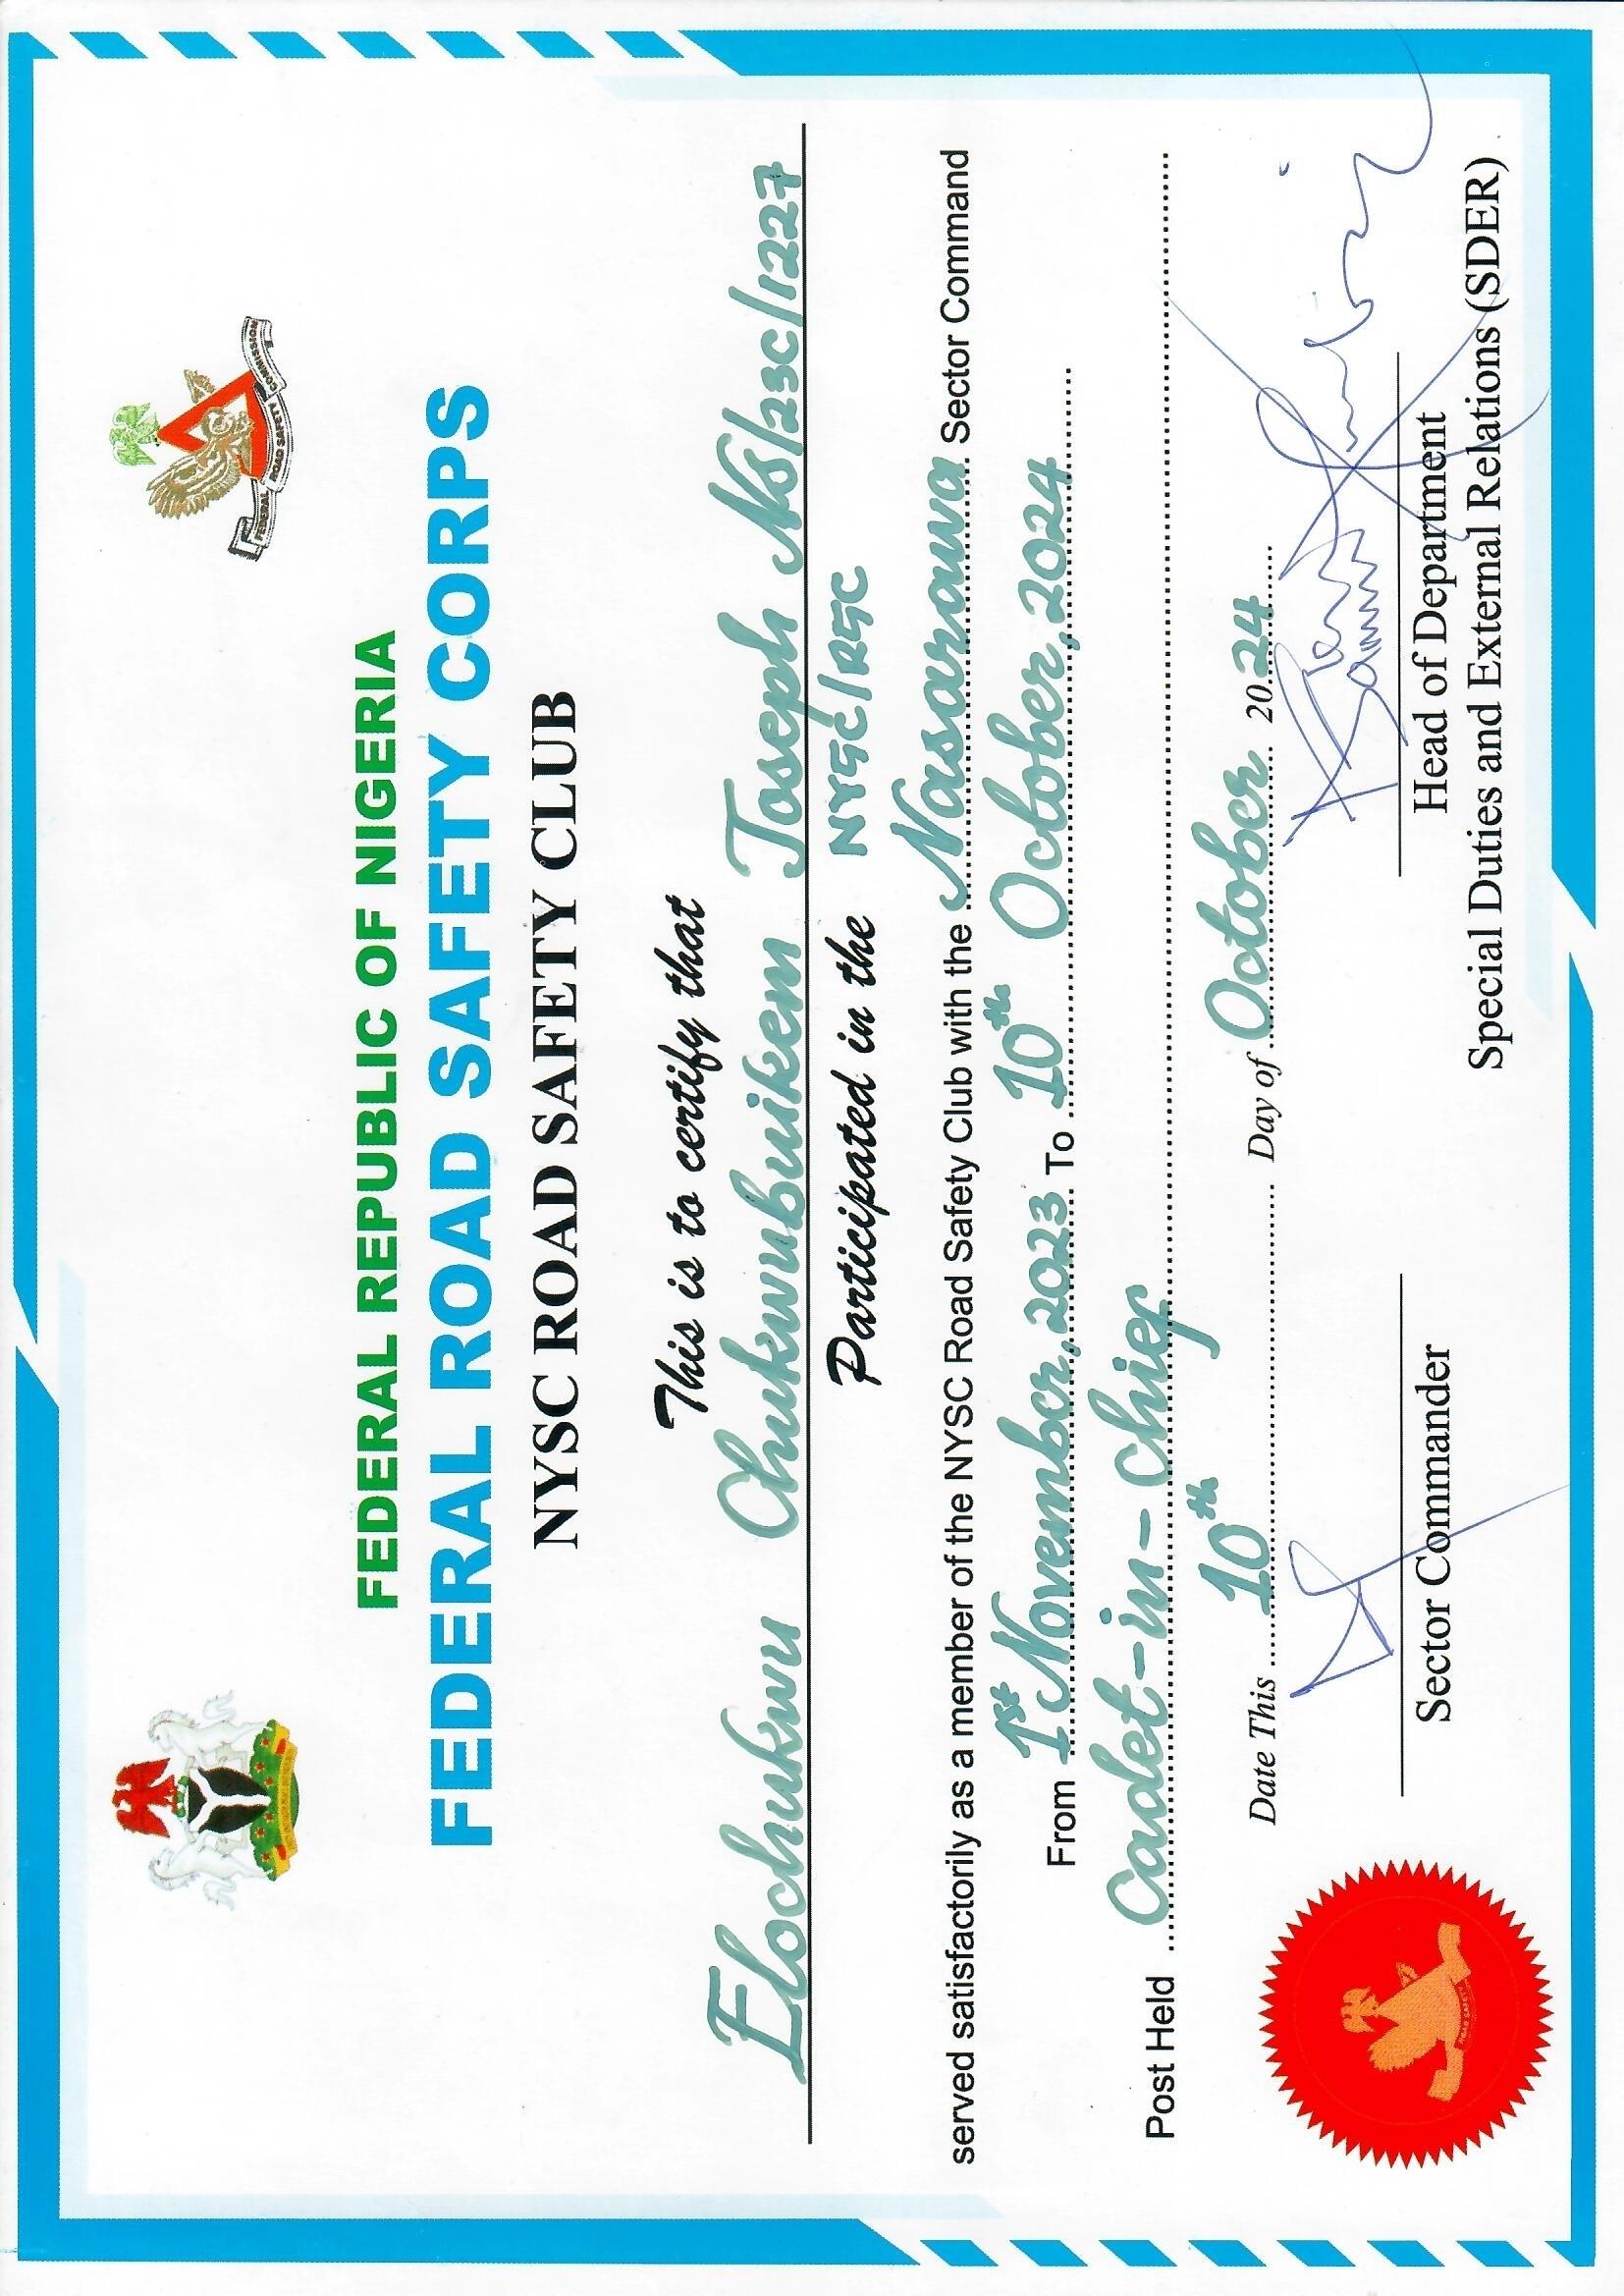 FEDERAL ROAD SAFETY COMMISSION
FEDERAL REPUBLIC OF NIGERIA
FEDERAL ROAD SAFETY CORPS
NYSC ROAD SAFETY CLUB
This is to certify that
Elochukwu Chukwubuikem Joseph NS/23C/1227
Participated in the NYSC/RSC
served satisfactorily as a member of the NYSC Road Safety Club with the Nasarawa Sector Command
From 1st November, 2023 To 10th October, 2024
Post Held Cadet-in-Chief
Date This 10th Day of October 2024
ROAD SAFETY
Sector Commander
Head of Department
Special Duties and External Relations (SDER)